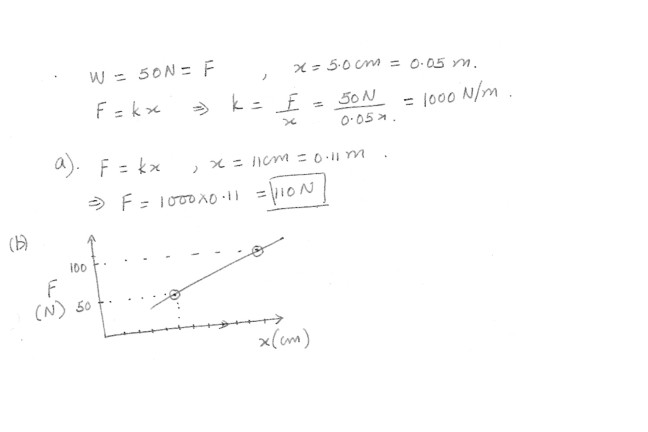 W = 50N = F , x = 5.0cm = 0.05 m.
F = kx ⇒ k = F/x = 50N/0.05m. = 1000 N/m .
a). F = kx , x = 11cm = 0.11m .
⇒ F = 1000×0.11 = 110N
(b)
100
F
(N) 50
x(cm)